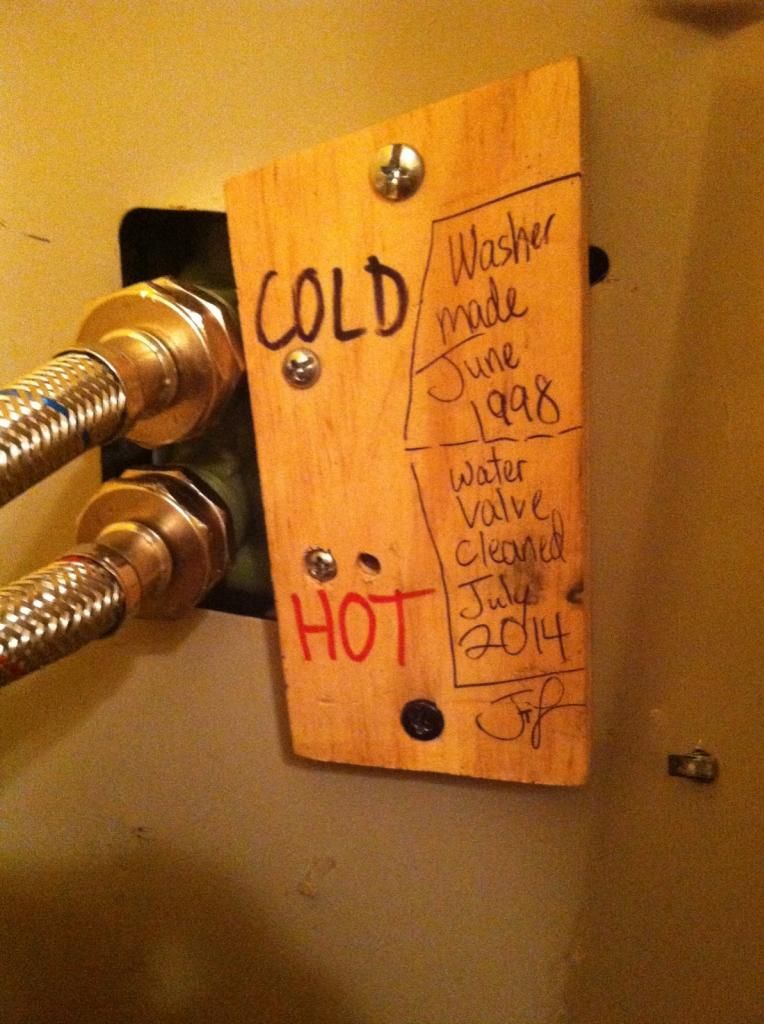 COLD
HOT
Washer
made
June
1998
Water
valve
cleaned
July
2014